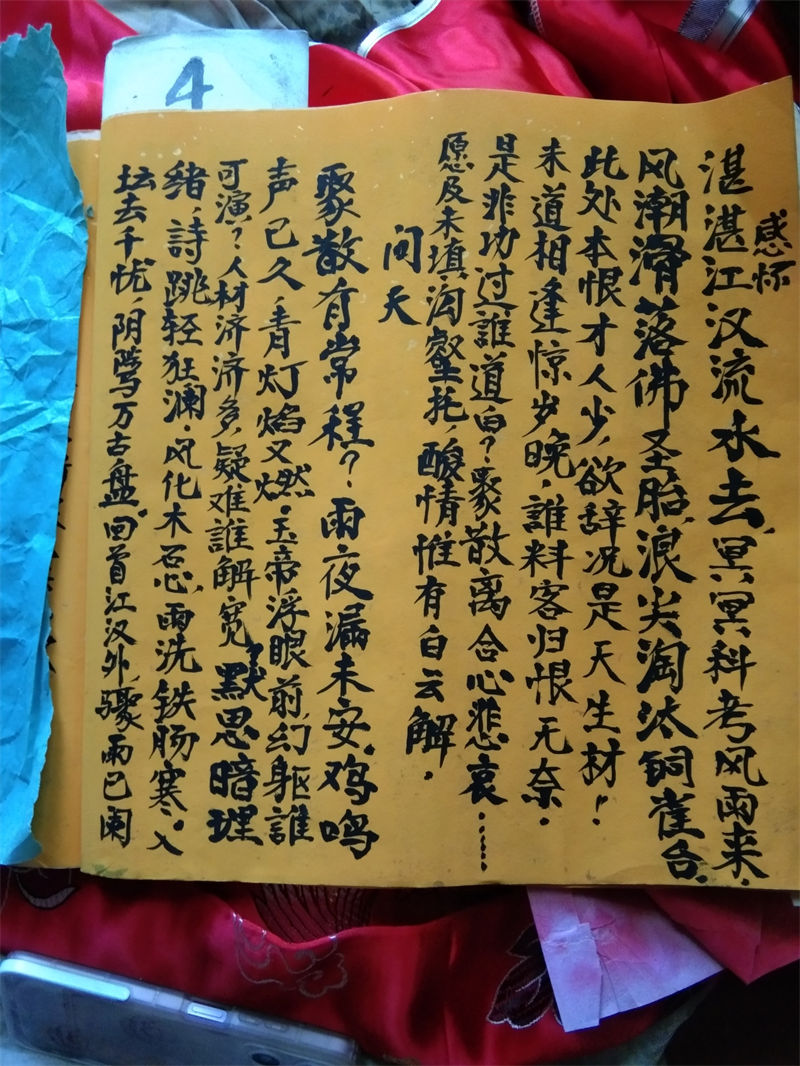 4
感怀
湛湛江汉流水去，冥冥科考风雨来，
风潮滑落佛圣胎，浪尖淘汰铜雀台，
此处本恨才人少，欲辞况是天生材！
未道相逢惊岁晚，誰料客归恨无奈。
是非功过誰道白？聚散离合心悲哀……
愿及未填沟壑托，酸情惟有白云解，
问天
聚散有常程？雨夜漏未安，鸡鸣
声已久，青灯焰又燃。玉帝浮眼前，幻躯誰
可演？人材济济多，疑难誰解宽，默思暗理
绪，詩跳轻狂澜，风化木石心，雨洗铁肠寒。入
坛去千忧，阴骘万古盘，回首江汉外，骤雨已阑